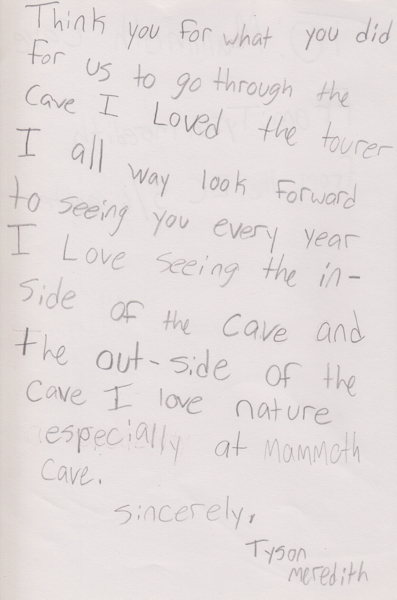 Think you for what you did
for us to go through the
Cave I Loved the tourer
I all way look forward
to seeing you every year
I Love seeing the in-
side of the cave and
the out-side of the
cave I love nature
especially at mammoth
cave.
sincerely,
Tyson
meredith